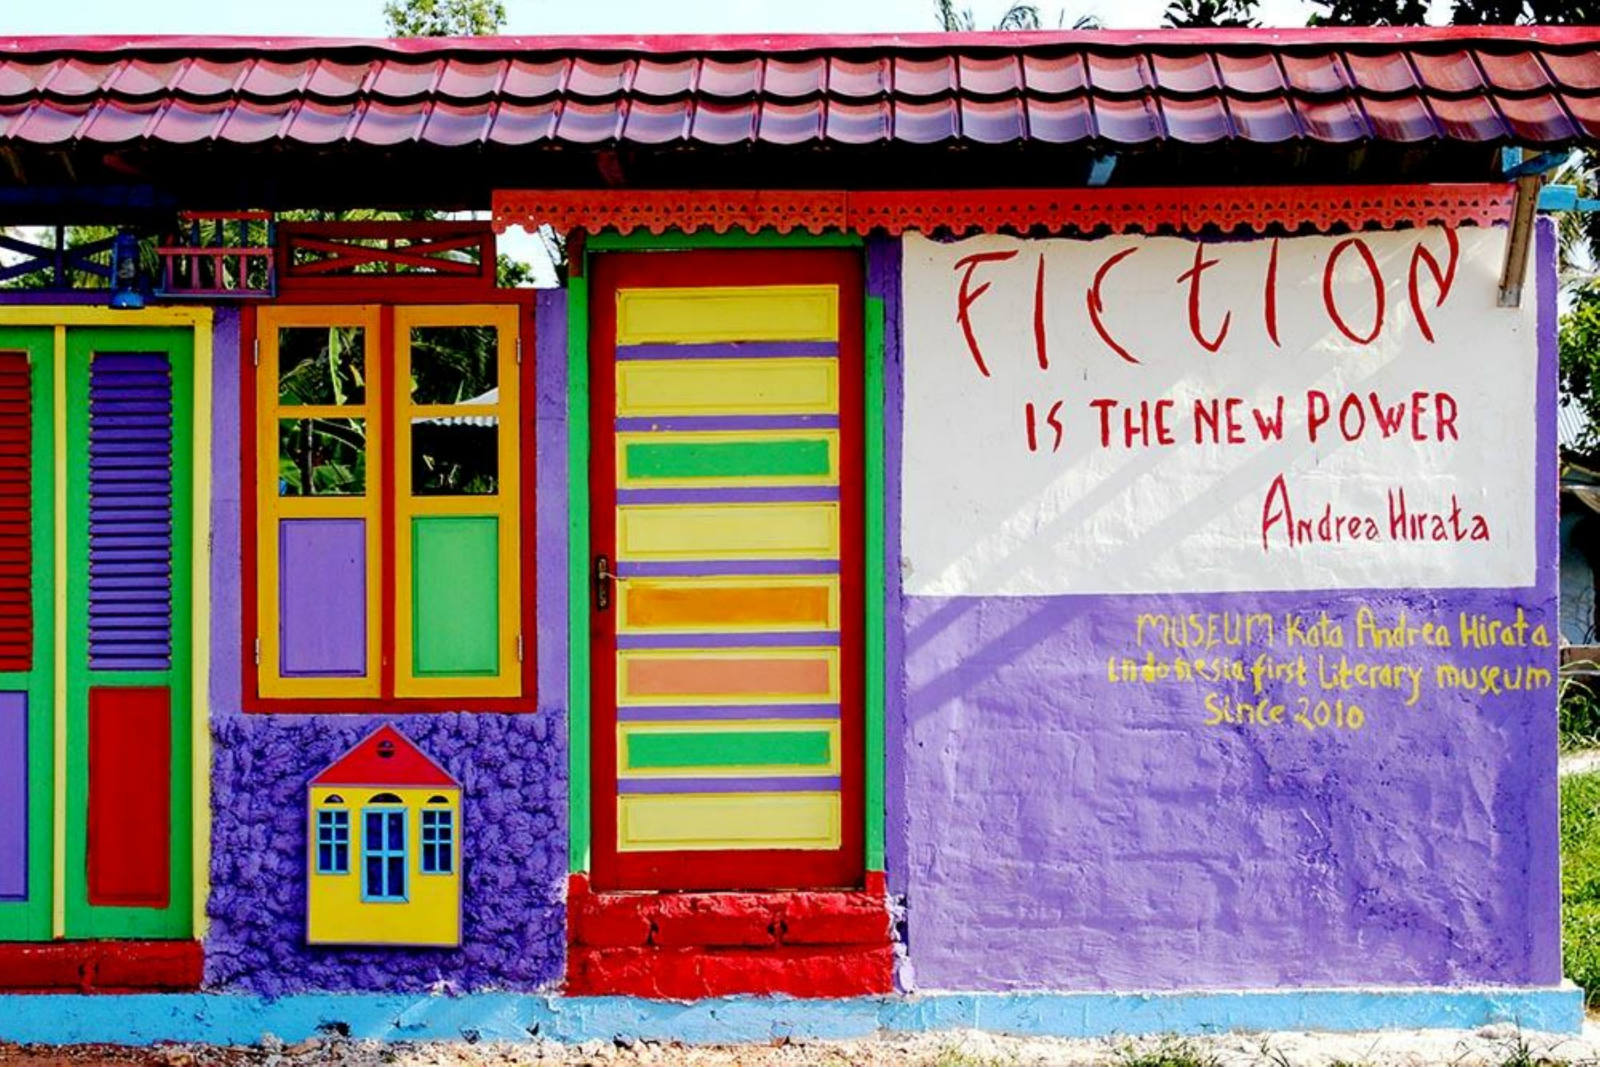 FICtION
IS THE NEW POWER
Andrea Hirata
MUSEUM Kata Andrea Hirata
indonesia first Literary museum
Since 2010